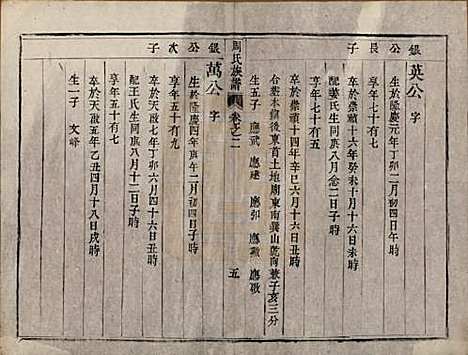 銀公長子
英公 字
生於隆慶元年丁卯二月初四日午時
卒於崇禎十六年癸未十月十六日未時
享年七十有七
配姜氏生同庚八月念二日子時
卒於崇禎十四年辛巳六月十六日丑時
享年七十有五
合葬本鎮後東首土地廟東南巽山乾向兼子亥三分
生五子 應武 應建 應卯 應 應
周氏族譜 卷之二 五
銀公次子
萬公 字
生於隆慶四年庚午二月初四日子時
卒於天啟七年丁卯六月十六日丑時
享年五十有七
配王氏生同庚八月十二日子時
卒於天啟五年乙丑四月十八日戌時
享年五十有七
生一子 文峰